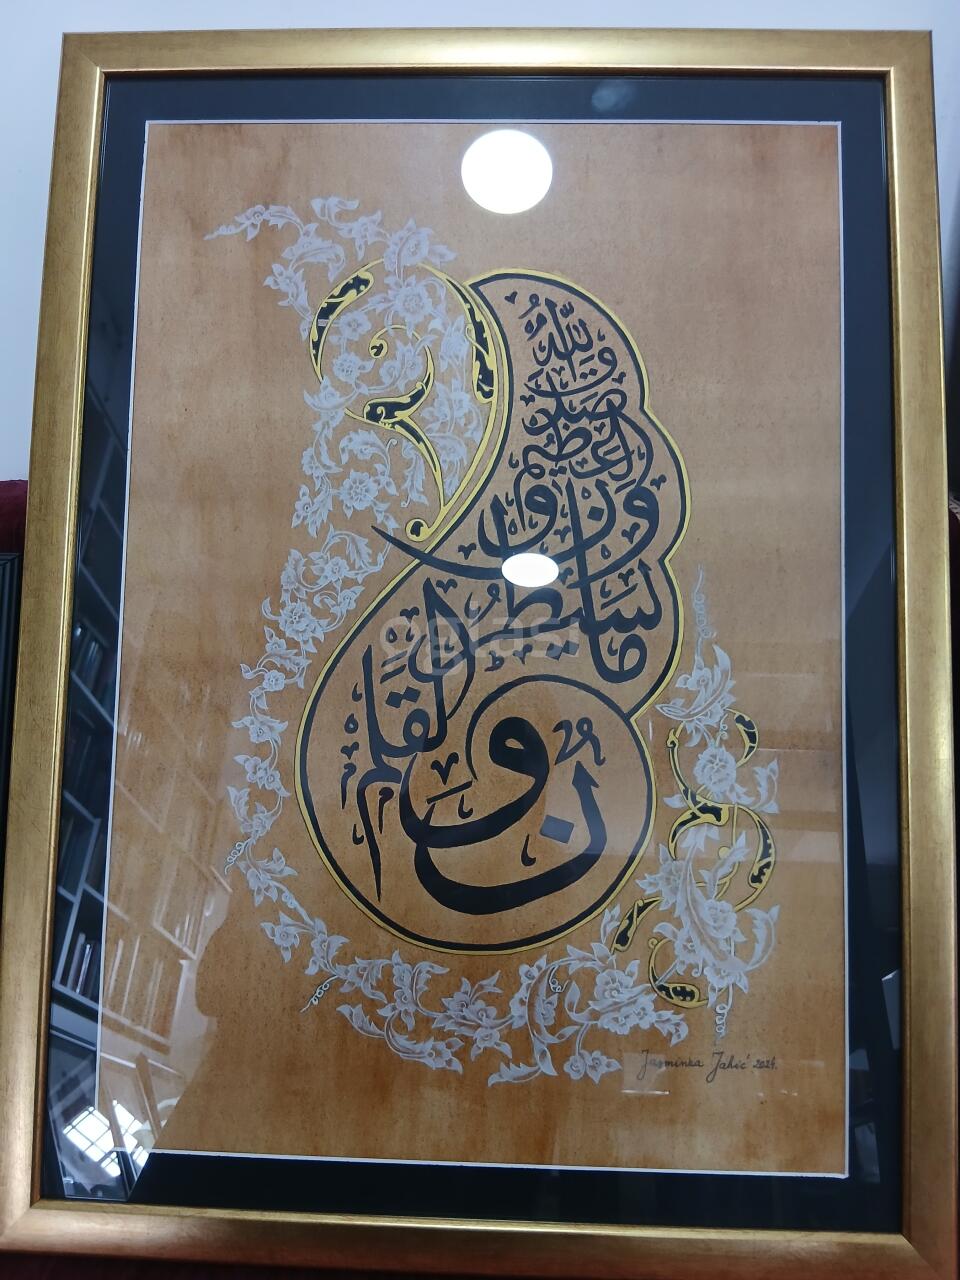 ن والقلم
وما يسطرون
صدق الله العظيم
oglasi
Jasminka Jahić 2024.